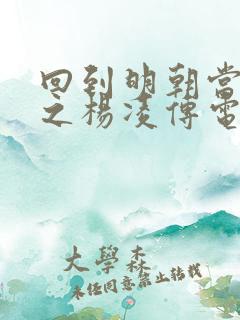 回到明朝當
之楊凌傳電
大學森
未經同意禁止轉載